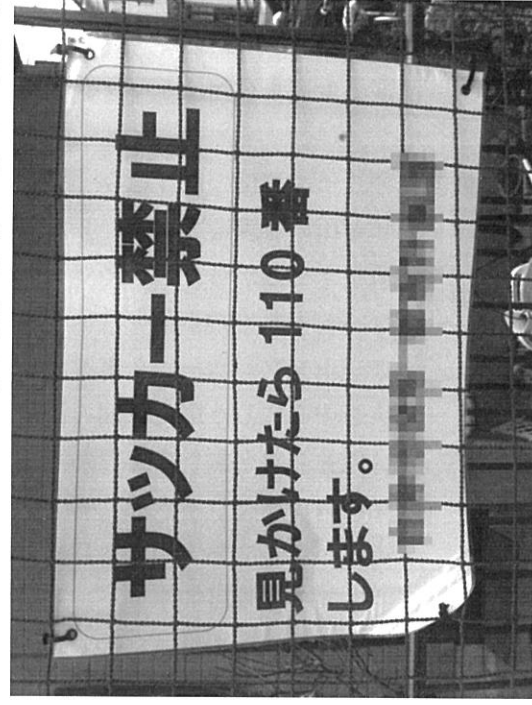 サッカー禁止
見かけたら110番
します。